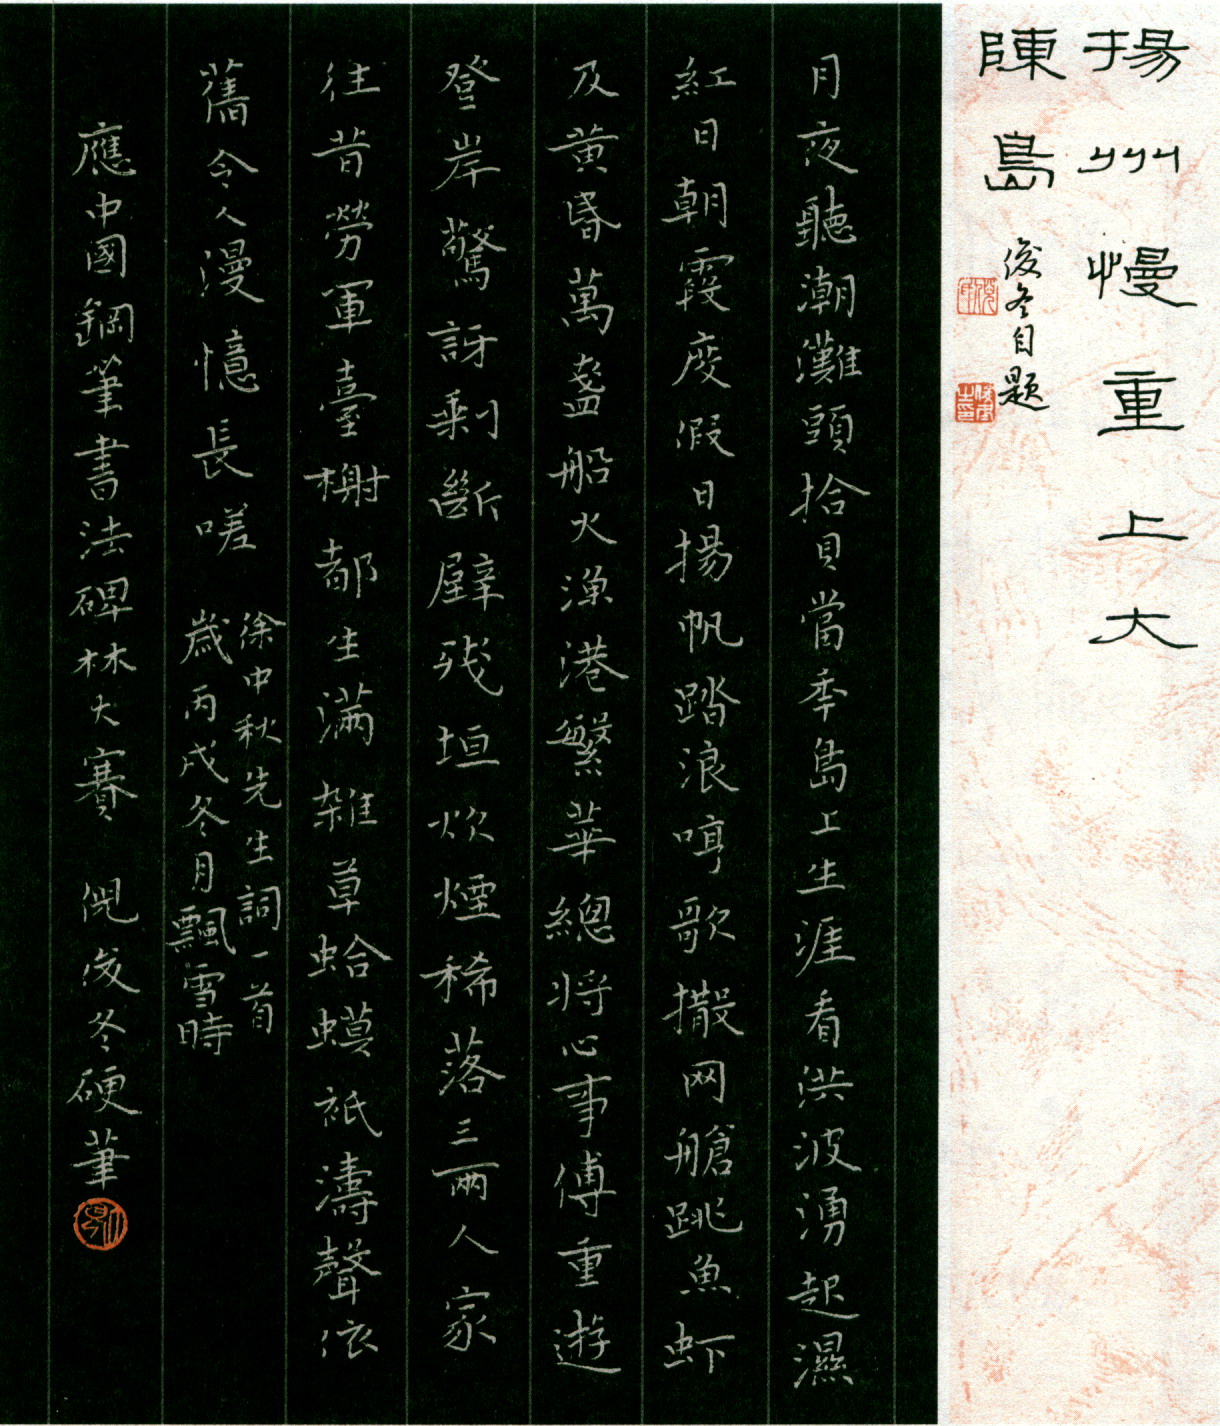 揚州慢重上大
陳島
俊冬自題
月夜聽潮灘頭拾貝當年島上生涯看洪波湧起濕
紅日朝霞度假日揚帆踏浪哼歌撒网艙跳魚虾
及黄昏萬盞船火漁港繁華總將心事傅重遊
登岸驚訝剩斷壁残垣炊煙稀落三兩人家
往昔勞軍臺榭都生滿雜草蛤蟆祇濤聲依
舊令人漫憶長嗟
徐中秋先生詞一首
歲丙戌冬月飄雪時
應中國鋼筆書法碑林大賽 倪俊冬硬筆